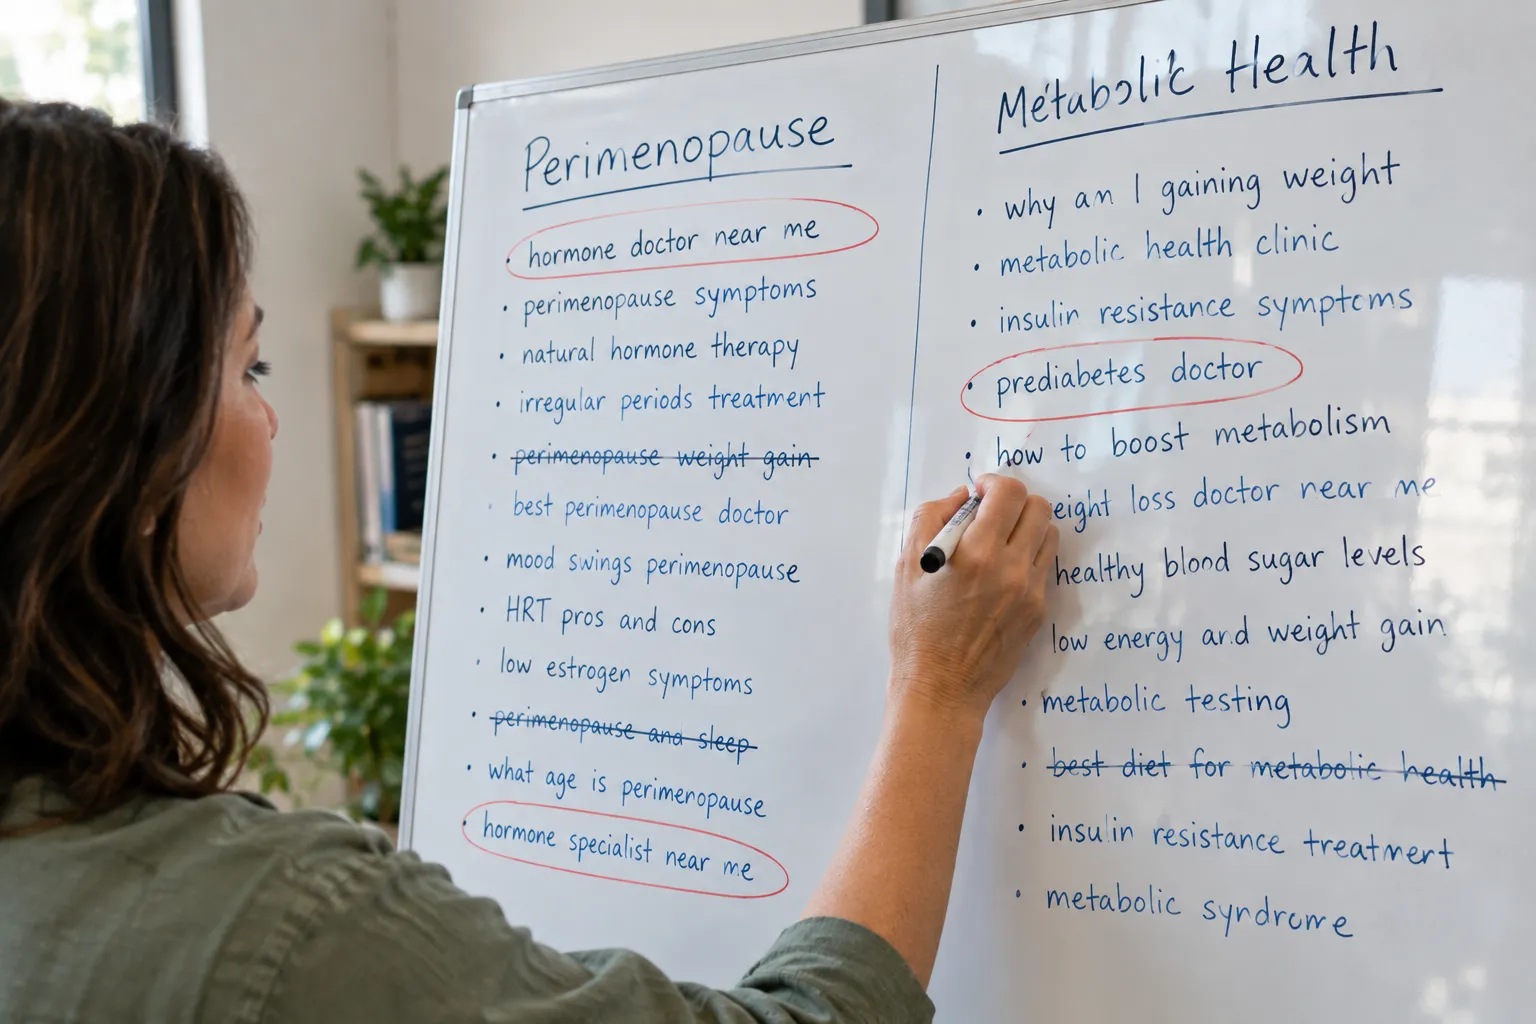 Perimenopause
hormone doctor near me
perimenopause symptoms
natural hormone therapy
irregular periods treatment
perimenopause weight gain
best perimenopause doctor
mood swings perimenopause
HRT pros and cons
low estrogen symptoms
perimenopause and sleep
what age is perimenopause
hormone specialist near me
Metabolic Health
why am I gaining weight
metabolic health clinic
insulin resistance symptoms
prediabetes doctor
how to boost metabolism
eight loss doctor near me
healthy blood sugar levels
low energy and weight gain
metabolic testing
best diet for metabolic health
insulin resistance treatment
metabolic syndrome